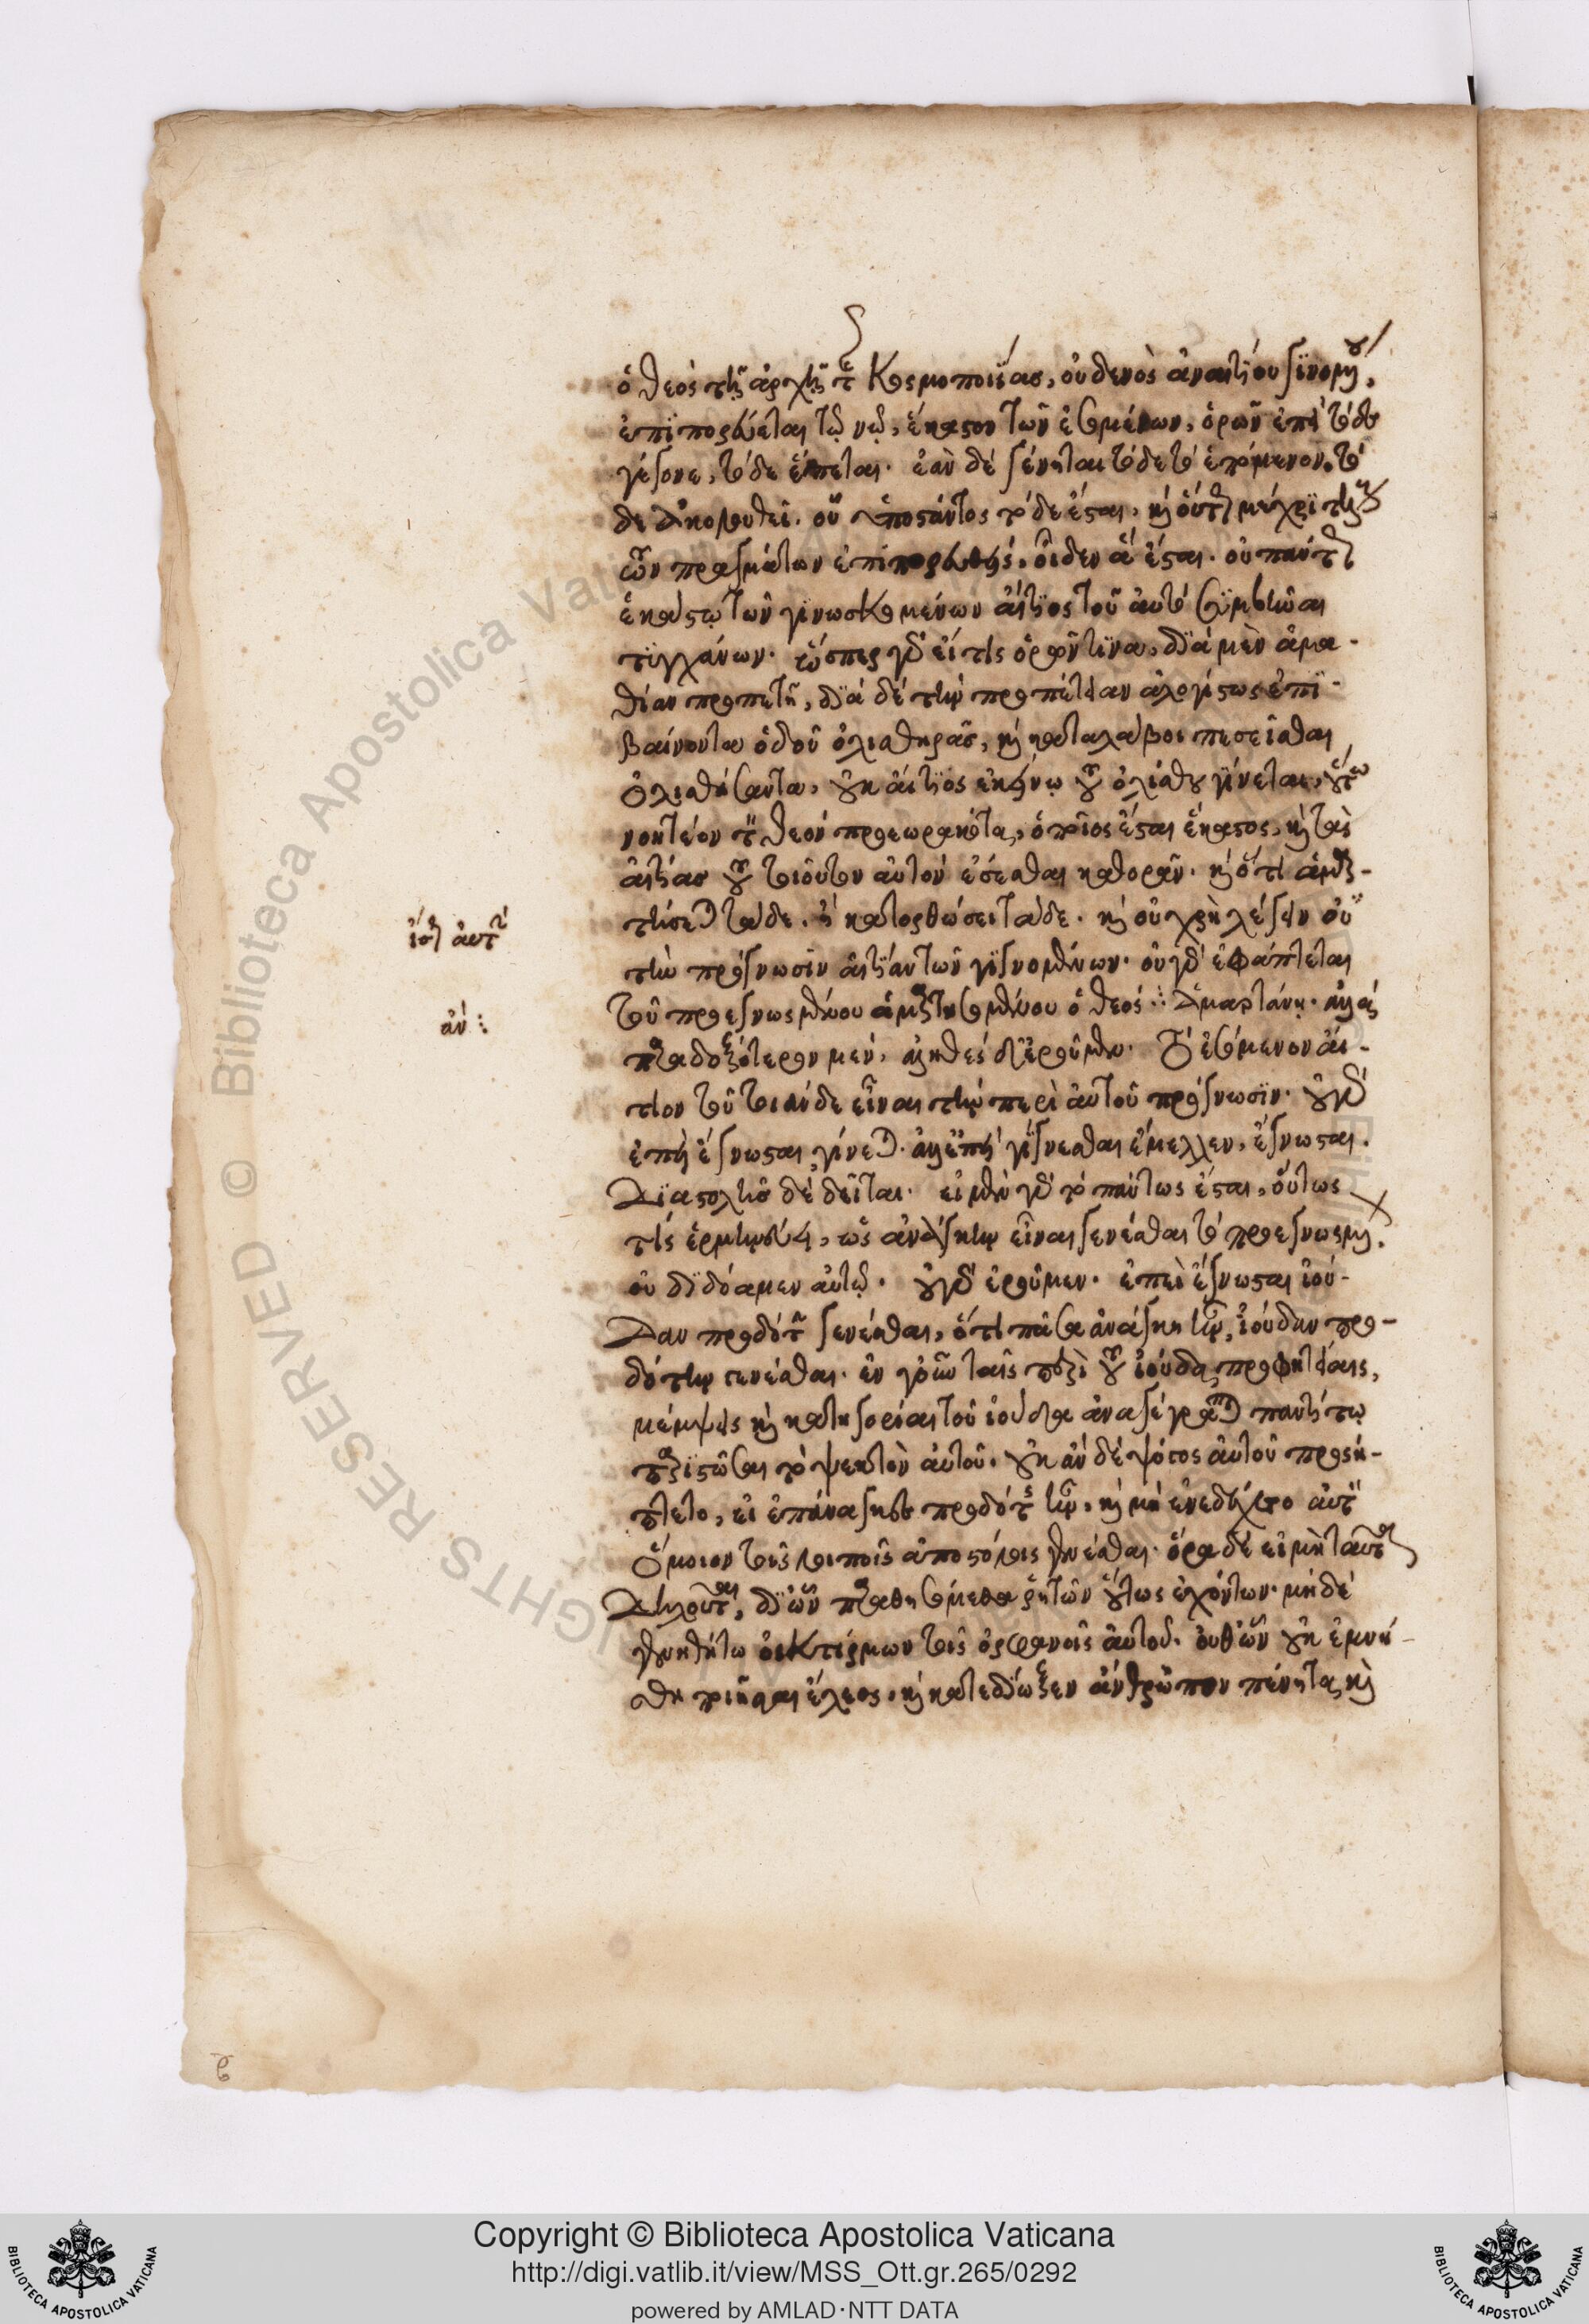 ὁ θεὸς τῇ ἀρχῇ τῆς κοσμοποιΐας, οὐδενὸς ἀναιτίου γινομένου,
ἐπιπορεύεται τῷ νῷ, ἕκαστον τῶν ἐσομένων, ὁρῶν ἐπεὶ τόδε
γέγονε, τόδε ἕπεται. ἐὰν δὲ γένηται τόδε τὸ ἑπόμενον, τό
δε ἀκολουθεῖ. οὗ ὑποστάντος τόδε ἔσται, καὶ οὕτως μέχρι τέλους
τῶν πραγμάτων ἐπιπορευθεὶς, οἶδεν ἃ ἔσται. οὐ πάντως
ἑκάστῳ τῶν γινωσκομένων αἴτιος τοῦ αὐτὸ συμβῆναι
τυγχάνων. ὥσπερ γὰρ εἴ τις ὁρῶν τινα, διὰ μὲν ἀμα-
θίαν προπετῆ, διὰ δὲ τὴν προπέτειαν ἀλογίστως ἐπι-
βαίνοντα ὁδοῦ ὀλισθηρᾶς, καὶ καταλάβοι πεσεῖσθαι
ὀλισθήσαντα, οὐκ αἴτιος ἐκείνῳ τοῦ ὀλίσθου γίνεται, οὕτω
νοητέον τὸν θεὸν προεωρακότα, ὁποῖος ἔσται ἕκαστος, καὶ τὰς
αἰτίας τοῦ τοιοῦτον αὐτὸν ἐσέσθαι καθορᾶν. καὶ ὅτι ἁμαρ-
τήσεται τάδε. ἢ κατορθώσει τάδε. καὶ οὐ χρὴ λέγειν οὐ
τὴν πρόγνωσιν αἰτίαν τῶν γιγνομένων. οὐ γὰρ ἐφάπτεται
τοῦ προεγνωσμένου ἁμαρτησομένου ὁ θεός ἁμαρτάνῃ. ἀλλὰ
παραδοξότερον μέν, ἀληθὲς δ' ἐροῦμεν. τὸ ἐσόμενον αἴ-
τιον τοῦ τοιάνδε εἶναι τὴν περὶ αὐτοῦ πρόγνωσιν. οὐ γὰρ
ἐπεὶ ἔγνωσται, γίνεται. ἀλλ' ἐπεὶ γίγνεσθαι ἔμελλεν, ἔγνωσται.
Διαστολῆς δὲ δεῖται. εἰ μὲν γὰρ τὸ πάντως ἔσται, οὕτως
τίς ἑρμηνεύει, ὡς ἀνάγκην εἶναι γενέσθαι τὸ προεγνωσμένον.
οὐ διδόαμεν αὐτῷ. οὐ γὰρ ἐροῦμεν. ἐπεὶ ἔγνωσται ἰού-
δαν προδότην γενέσθαι, ὅτι πᾶσα ἀνάγκη ἦν, ἰούδαν προ-
δότην γενέσθαι. ἐν γοῦν ταῖς περὶ τοῦ ἰούδα προφητείαις,
μέμψεις καὶ κατηγορίαι τοῦ ἰούδα ἀναγέγραπται παντί τῳ
παριστῶσαι τὸ ψεκτὸν αὐτοῦ. οὐκ ἂν δὲ ψόγος αὐτοῦ προσή-
πτετο, εἰ ἐπάναγκες προδότης ἦν, καὶ μὴ ἐνεδέχετο αὐτὸν
ὅμοιον τοῖς λοιποῖς ἀποστόλοις γενέσθαι. ὅρα δὲ εἰ μὴ ταῦτα
δηλοῦται, δι' ὧν παραθησόμεθα ῥητῶν οὕτως ἐχόντων. μὴ δὲ
γενηθήτω οἰκτίρμων τοῖς ὀρφανοῖς αὐτοῦ. ἀνθ' ὧν οὐκ ἐμνή-
σθη ποιῆσαι ἔλεος, καὶ κατεδίωξεν ἄνθρωπον πένητα, καὶ
ἄν:
Copyright © Biblioteca Apostolica Vaticana
http://digi.vatlib.it/view/MSS_Ott.gr.265/0292
powered by AMLAD·NTT DATA
BIBLIOTECA APOSTOLICA VATICANA
BIBLIOTECA APOSTOLICA VATICANA